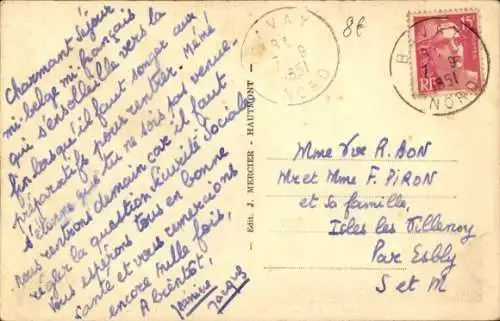 Charmant séjour
mi-belge mi-français
qui s'ensolleille vers la
fin lorsqu'il faut songer aux
préparatifs pour rentrer. Mémé
s'étonne que tu ne sois pas venue.
nous rentrons demain car il faut
régler la question Sécurité Sociale
Vous espérons tous en bonne
santé et vous remercions
encore mille fois,
A bientôt,
Jeanine
Jacques
Edit. J. MERCIER - HAUTMONT -
BAVAY
1951
NORD
8f
15F
RF
BAVAY
1951
NORD
Mme Vve R. BON
Mr et Mme F. PIRON
et sa famille,
Isles les Villenoy
Par Esbly
S et M